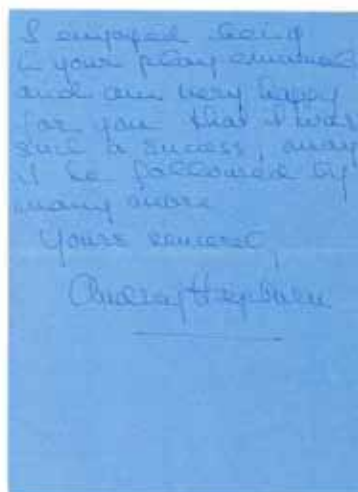 I enjoyed being
in your play
and am very happy
for you that it was
such a success, may
it be followed by
many more
Yours sincerely,
Audrey Hepburn